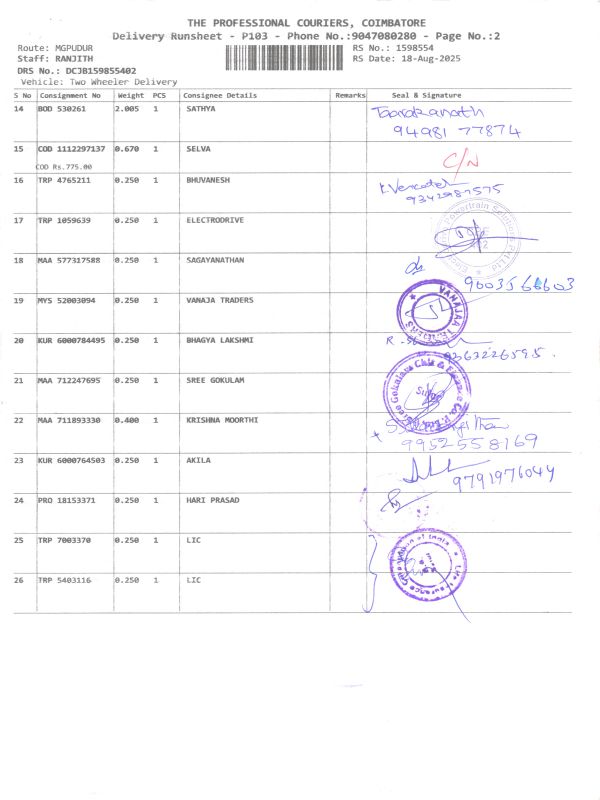 THE PROFESSIONAL COURIERS, COIMBATORE
Delivery Runsheet - P103 - Phone No.:9047080280 - Page No.:2
Route: MGPUDUR RS No.: 1598554
Staff: RANJITH RS Date: 18-Aug-2025
DRS No.: DCJB159855402
Vehicle: Two Wheeler Delivery
S No Consignment No Weight PCS Consignee Details Remarks Seal & Signature
14 BOD 530261 2.005 1 SATHYA Taarakanath
94981 77874
15 COD 1112297137 0.670 1 SELVA C/N
COD Rs.775.00
16 TRP 4765211 0.250 1 BHUVANESH
9342987575
17 TRP 1059639 0.250 1 ELECTRODRIVE
18 MAA 577317588 0.250 1 SAGAYANATHAN
9003566603
19 MYS 52003094 0.250 1 VANAJA TRADERS VANAJAA TRADERS
20 KUR 6000784495 0.250 1 BHAGYA LAKSHMI
9363226595.
21 MAA 712247695 0.250 1 SREE GOKULAM Sree Gokulam Chit & Finance Co. P. Ltd
22 MAA 711893330 0.400 1 KRISHNA MOORTHI
9952558169
23 KUR 6000764503 0.250 1 AKILA
9791976044
24 PRO 18153371 0.250 1 HARI PRASAD
25 TRP 7003370 0.250 1 LIC Life Insurance Corporation of India
26 TRP 5403116 0.250 1 LIC